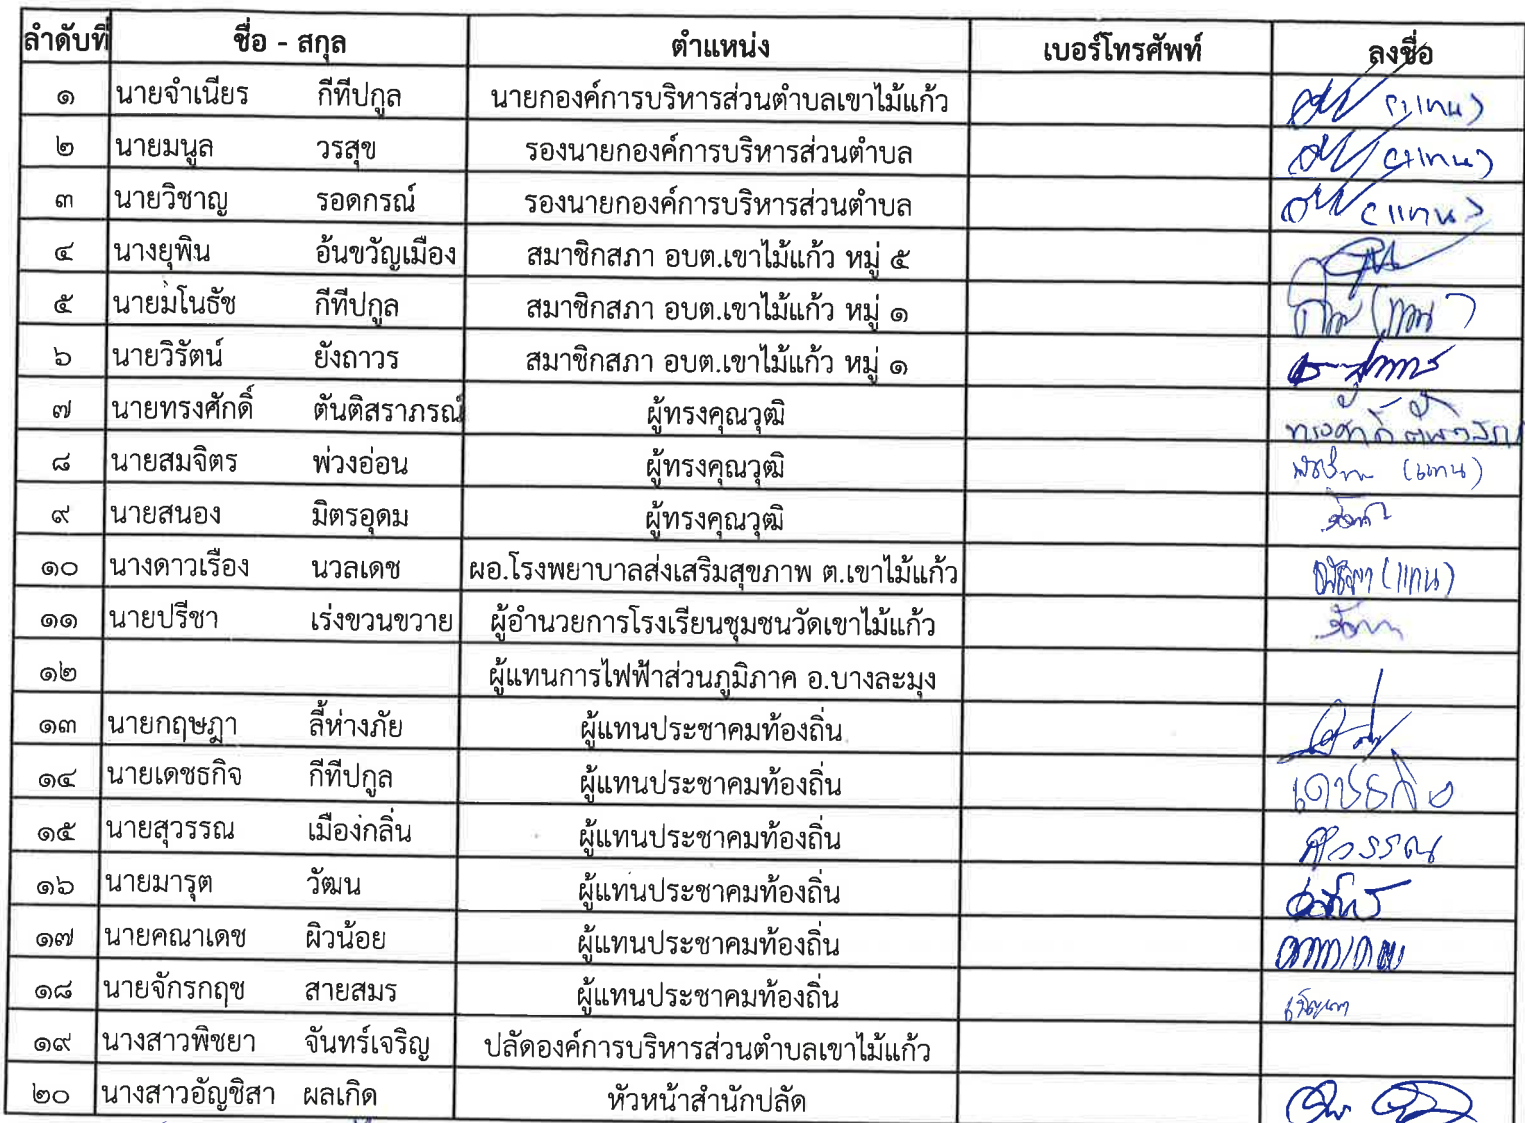 ลำดับที่ ชื่อ - สกุล ตำแหน่ง เบอร์โทรศัพท์ ลงชื่อ
๑ นายจำเนียร กีทีปกูล นายกองค์การบริหารส่วนตำบลเขาไม้แก้ว (แทน)
๒ นายมนูล วรสุข รองนายกองค์การบริหารส่วนตำบล (แทน)
๓ นายวิชาญ รอดกรณ์ รองนายกองค์การบริหารส่วนตำบล (แทน)
๔ นางยุพิน อ้นขวัญเมือง สมาชิกสภา อบต.เขาไม้แก้ว หมู่ ๕
๕ นายมโนธัช กีทีปกูล สมาชิกสภา อบต.เขาไม้แก้ว หมู่ ๑ (แทน)
๖ นายวิรัตน์ ยังถาวร สมาชิกสภา อบต.เขาไม้แก้ว หมู่ ๑
๗ นายทรงศักดิ์ ตันติสราภรณ์ ผู้ทรงคุณวุฒิ ทรงศักดิ์
๘ นายสมจิตร พ่วงอ่อน ผู้ทรงคุณวุฒิ (แทน)
๙ นายสนอง มิตรอุดม ผู้ทรงคุณวุฒิ
๑๐ นางดาวเรือง นวลเดช ผอ.โรงพยาบาลส่งเสริมสุขภาพ ต.เขาไม้แก้ว (แทน)
๑๑ นายปรีชา เร่งขวนขวาย ผู้อำนวยการโรงเรียนชุมชนวัดเขาไม้แก้ว
๑๒ ผู้แทนการไฟฟ้าส่วนภูมิภาค อ.บางละมุง
๑๓ นายกฤษฎา ลี้ห่างภัย ผู้แทนประชาคมท้องถิ่น
๑๔ นายเดชธกิจ กีทีปกูล ผู้แทนประชาคมท้องถิ่น เดชธกิจ
๑๕ นายสุวรรณ เมืองกลิ่น ผู้แทนประชาคมท้องถิ่น สุวรรณ
๑๖ นายมารุต วัฒน ผู้แทนประชาคมท้องถิ่น
๑๗ นายคณาเดช ผิวน้อย ผู้แทนประชาคมท้องถิ่น
๑๘ นายจักรกฤช สายสมร ผู้แทนประชาคมท้องถิ่น
๑๙ นางสาวพิชยา จันทร์เจริญ ปลัดองค์การบริหารส่วนตำบลเขาไม้แก้ว
๒๐ นางสาวอัญชิสา ผลเกิด หัวหน้าสำนักปลัด